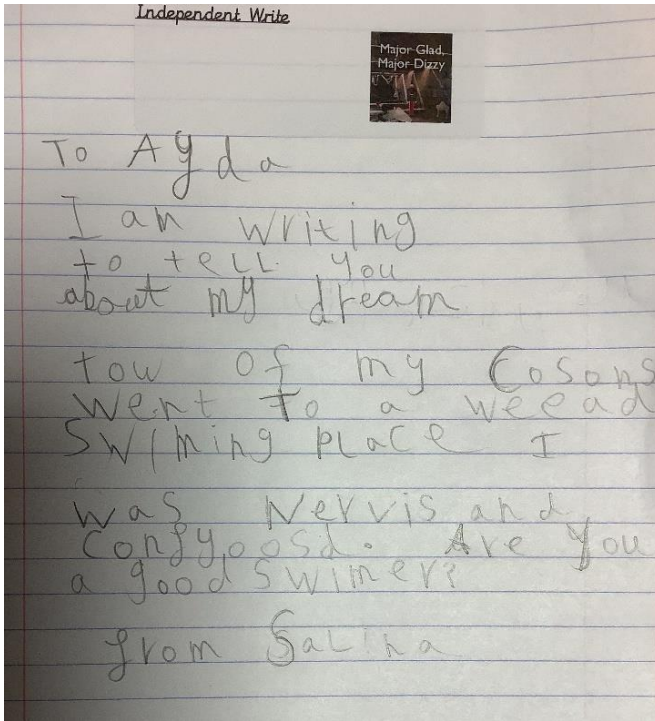 Independent Write
Major Glad,
Major Dizzy
To Ayda
I am writing
to tell you
about my dream
tow of my Cosons
went to a weead
swiming place I
was Nervis and
confyoosd. Are you
a good swimer?
from Salina